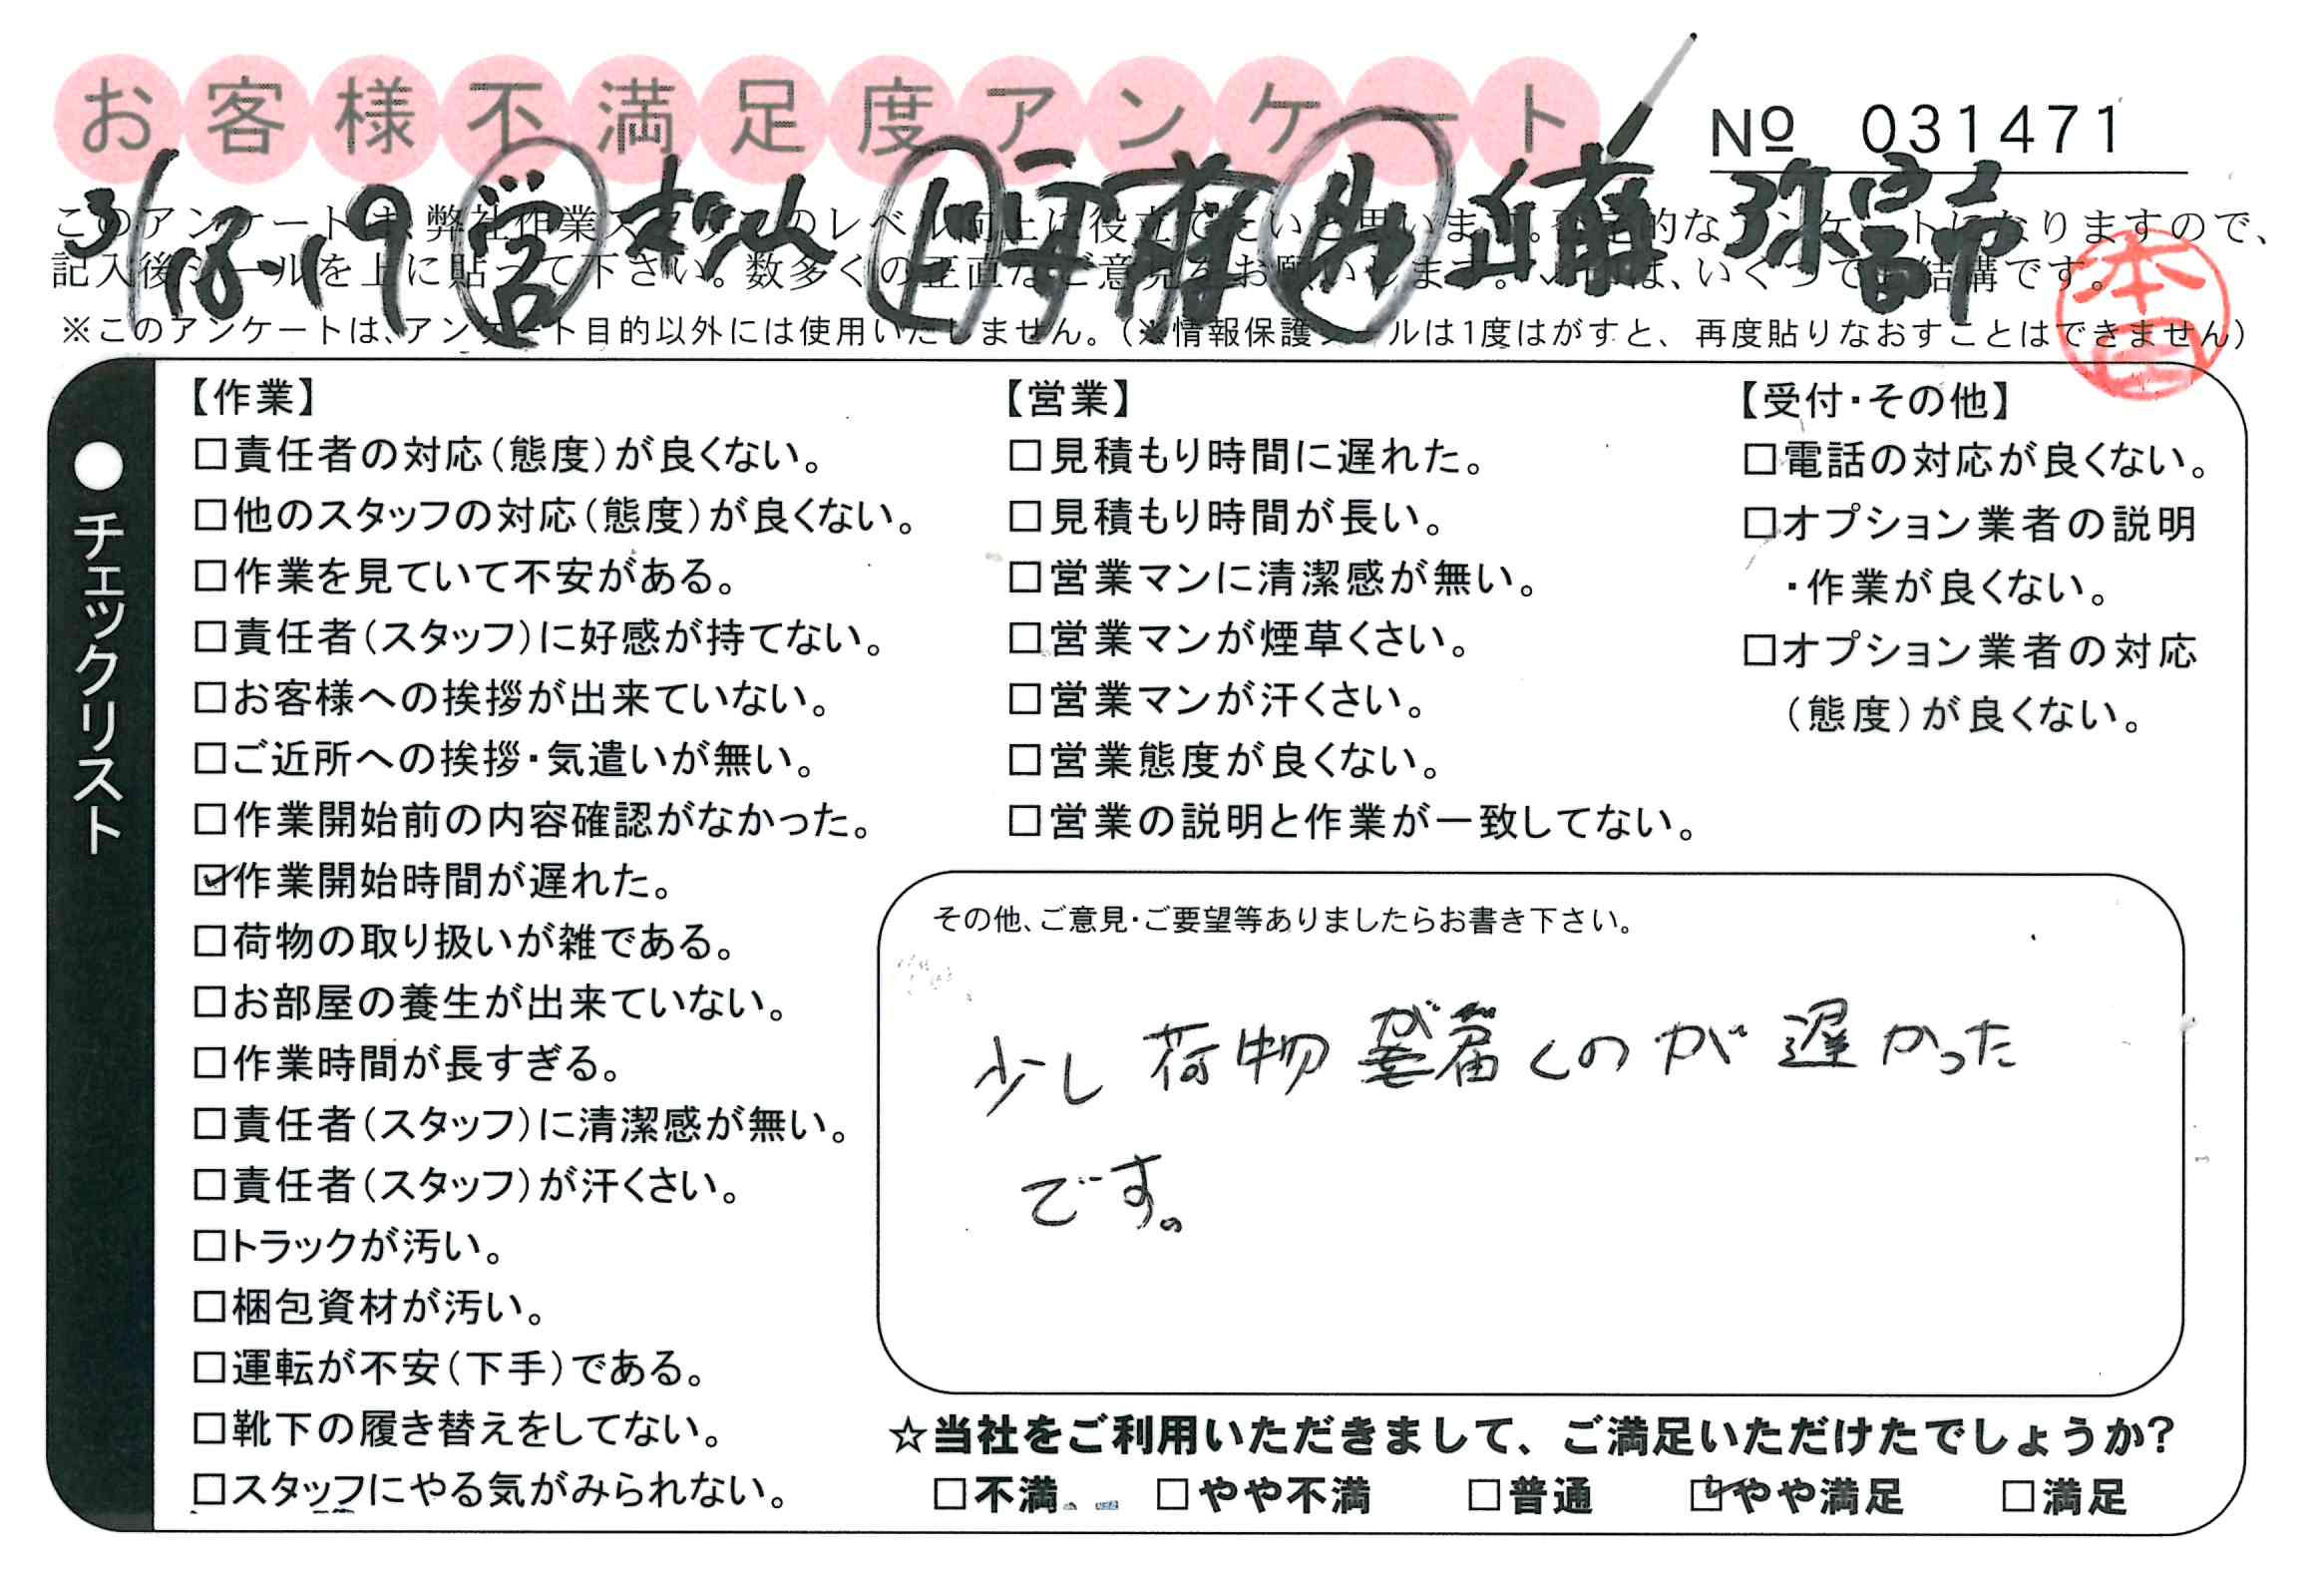 お客様不満足度アンケート
№ 031471
3/18.19 営 松 近藤 弥富市
このアンケートは、弊社作業スタッフのレベル向上に役立てたいと思います。なりますので、
記入後シールを上に貼って下さい。数多くの正直なご意見をお願いします。は、いくつでも結構です。
※このアンケートは、アンケート目的以外には使用いたしません。（※情報保護シールは1度はがすと、再度貼りなおすことはできません）
●チェックリスト
【作業】
□責任者の対応（態度）が良くない。
□他のスタッフの対応（態度）が良くない。
□作業を見ていて不安がある。
□責任者（スタッフ）に好感が持てない。
□お客様への挨拶が出来ていない。
□ご近所への挨拶・気遣いが無い。
□作業開始前の内容確認がなかった。
☑作業開始時間が遅れた。
□荷物の取り扱いが雑である。
□お部屋の養生が出来ていない。
□作業時間が長すぎる。
□責任者（スタッフ）に清潔感が無い。
□責任者（スタッフ）が汗くさい。
□トラックが汚い。
□梱包資材が汚い。
□運転が不安（下手）である。
□靴下の履き替えをしてない。
□スタッフにやる気がみられない。
【営業】
□見積もり時間に遅れた。
□見積もり時間が長い。
□営業マンに清潔感が無い。
□営業マンが煙草くさい。
□営業マンが汗くさい。
□営業態度が良くない。
□営業の説明と作業が一致してない。
【受付・その他】
□電話の対応が良くない。
□オプション業者の説明
・作業が良くない。
□オプション業者の対応
（態度）が良くない。
その他、ご意見・ご要望等ありましたらお書き下さい。
少し荷物が届くのが遅かった
です。
☆当社をご利用いただきまして、ご満足いただけたでしょうか？
□不満 □やや不満 □普通 ☑やや満足 □満足